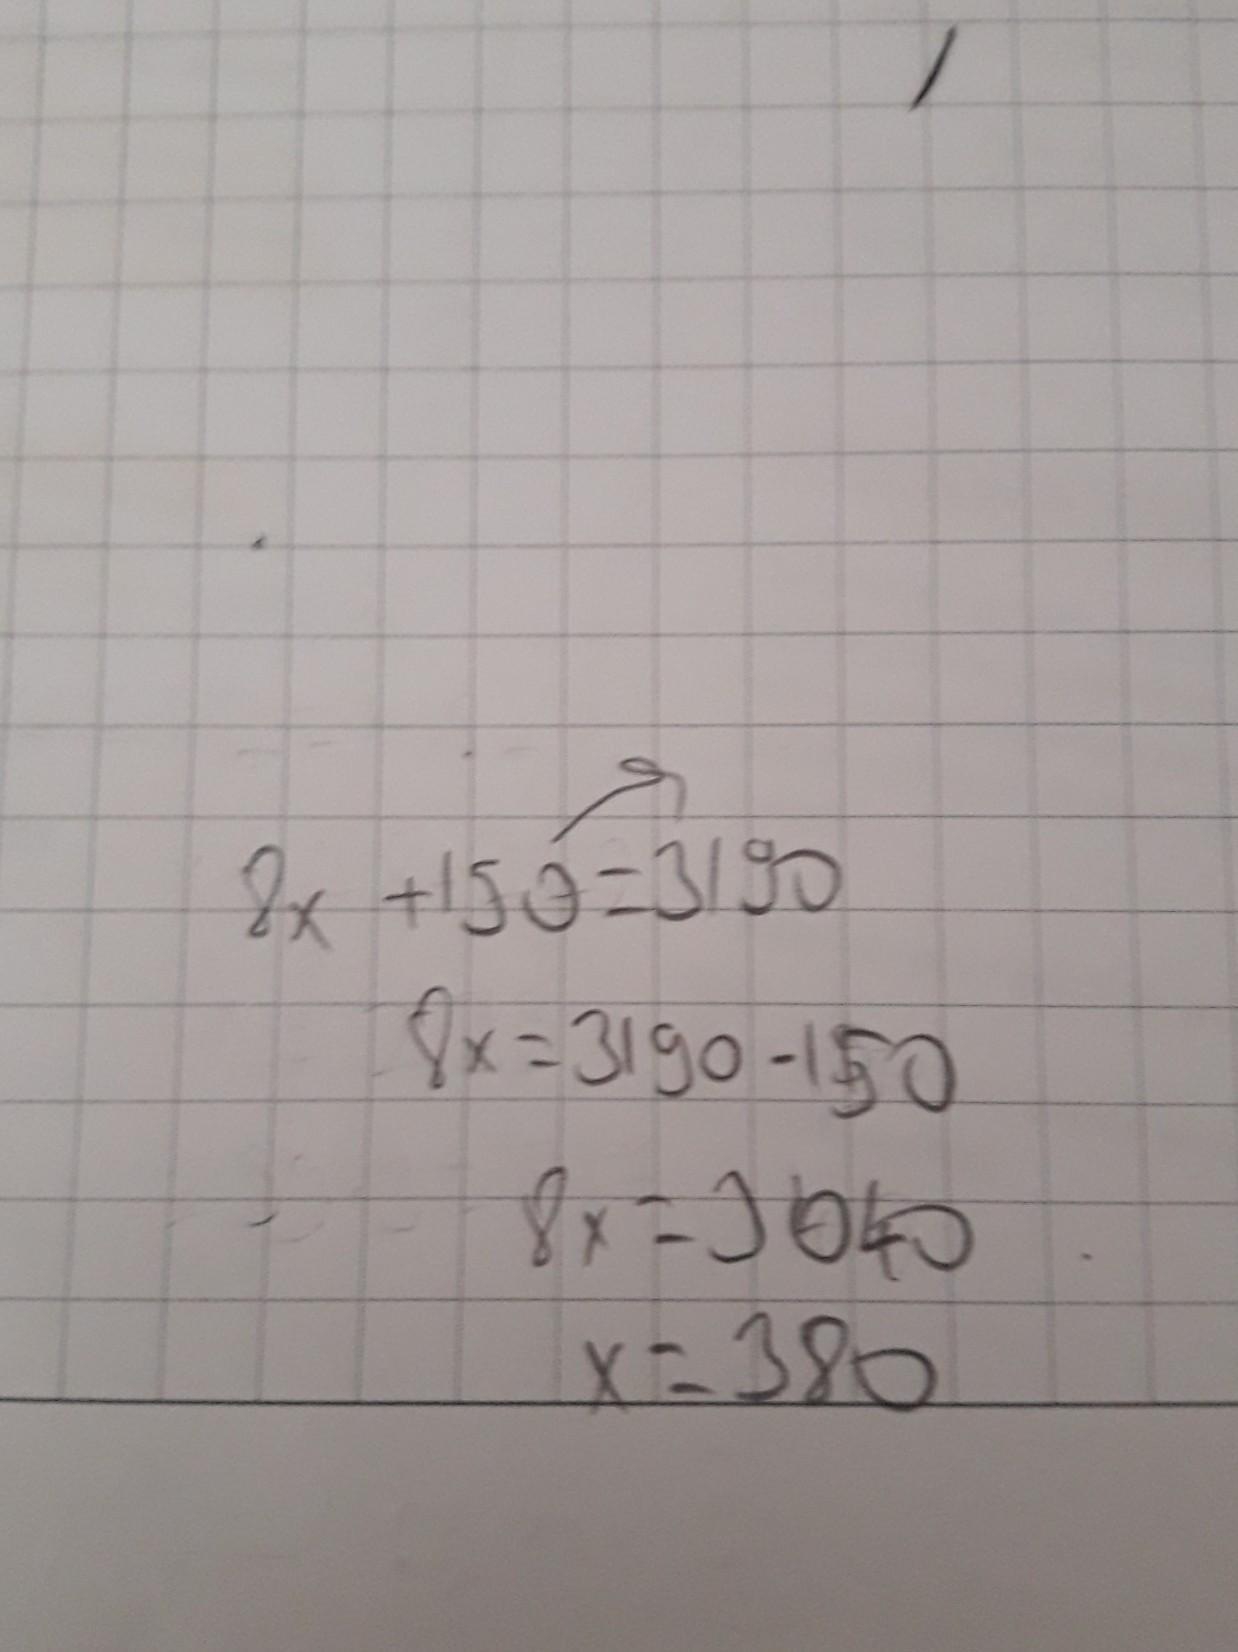 8x +150=3190
8x=3190-150
8x=3040
x=380